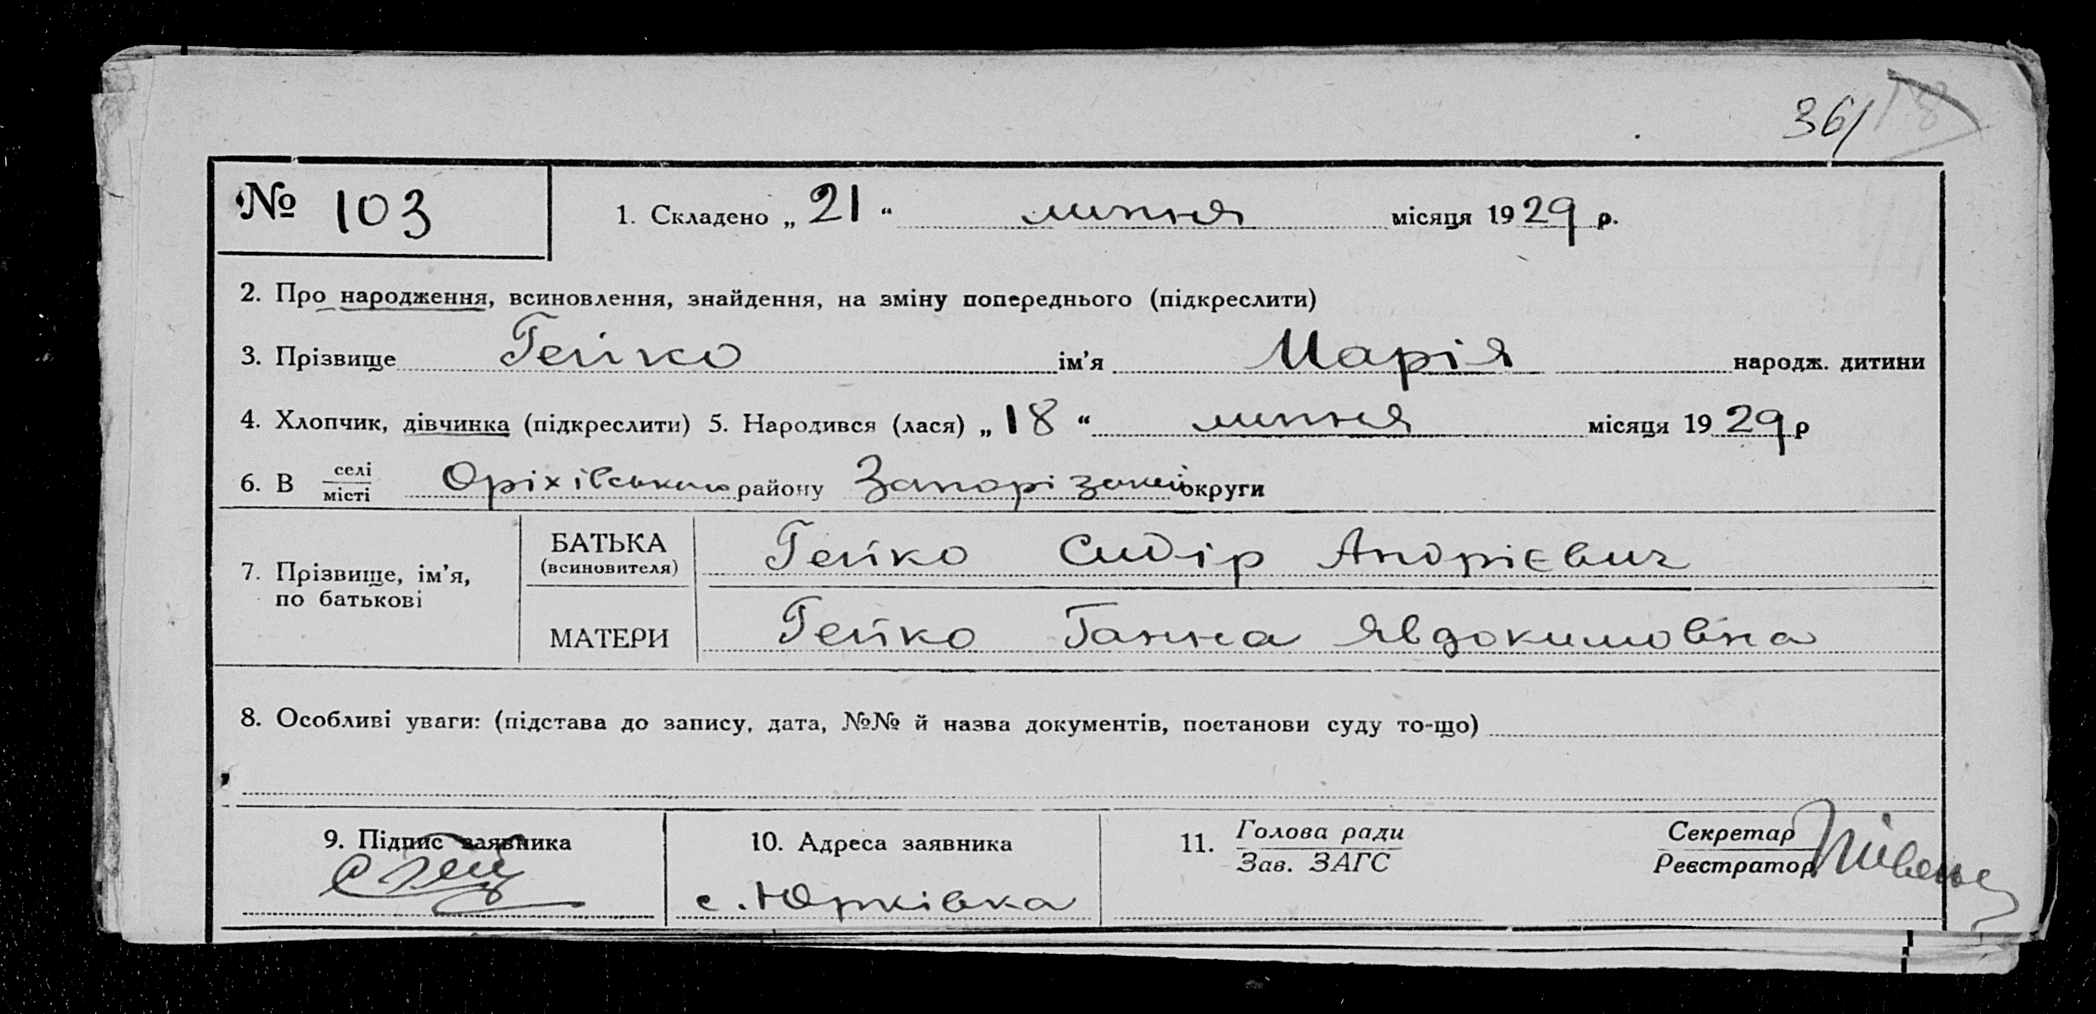 36/ 18
№ 103
1. Складено „ 21 “ липня місяця 1929 р.
2. Про народження, всиновлення, знайдення, на зміну попереднього (підкреслити)
3. Прізвище Гейко ім’я Марія народж. дитини
4. Хлопчик, дівчинка (підкреслити) 5. Народився (лася) „ 18 “ липня місяця 1929 р
6. В селі Оріхівського району Запорізької округи
місті
7. Прізвище, ім’я, по батькові
БАТЬКА (всиновителя) Гейко Сидір Андрієвич
МАТЕРИ Гейко Ганна Явдокимовна
8. Особливі уваги: (підстава до запису, дата, №№ й назва документів, постанови суду то-що)
9. Підпис заявника
10. Адреса заявника
с. Юрківка
11. Голова ради
Зав. ЗАГС
Секретар
Реєстратор